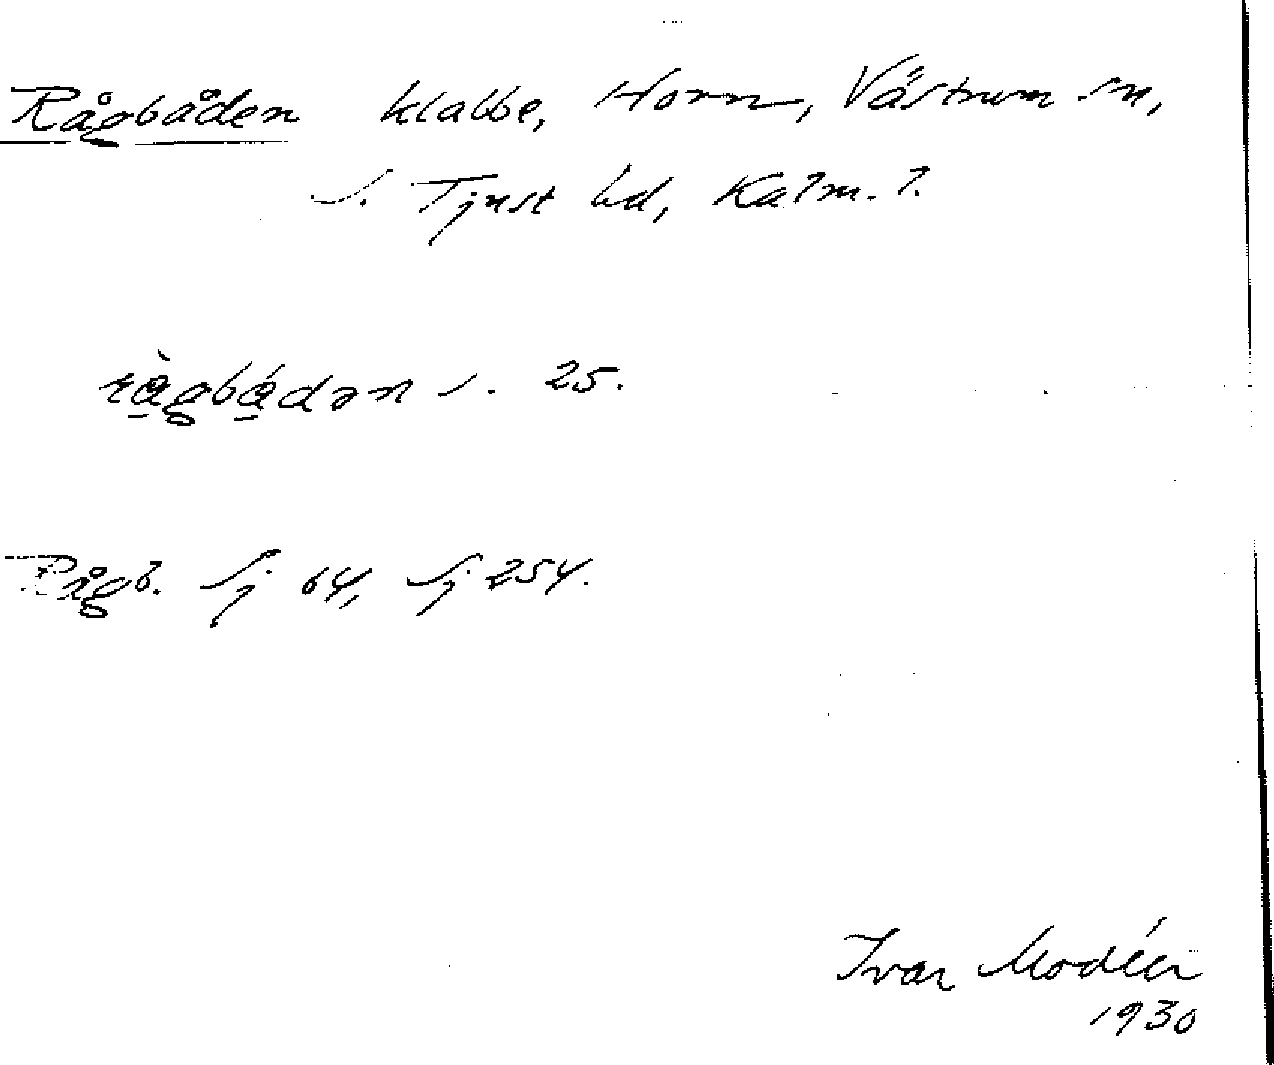 Rågbåden klabbe, Horn, Västrum sn,
S. Tjust hd, Kalm. l.
rågbådən s. 25.
Rågb. Sj 64, Sj 254.
Ivar Modéer
1930